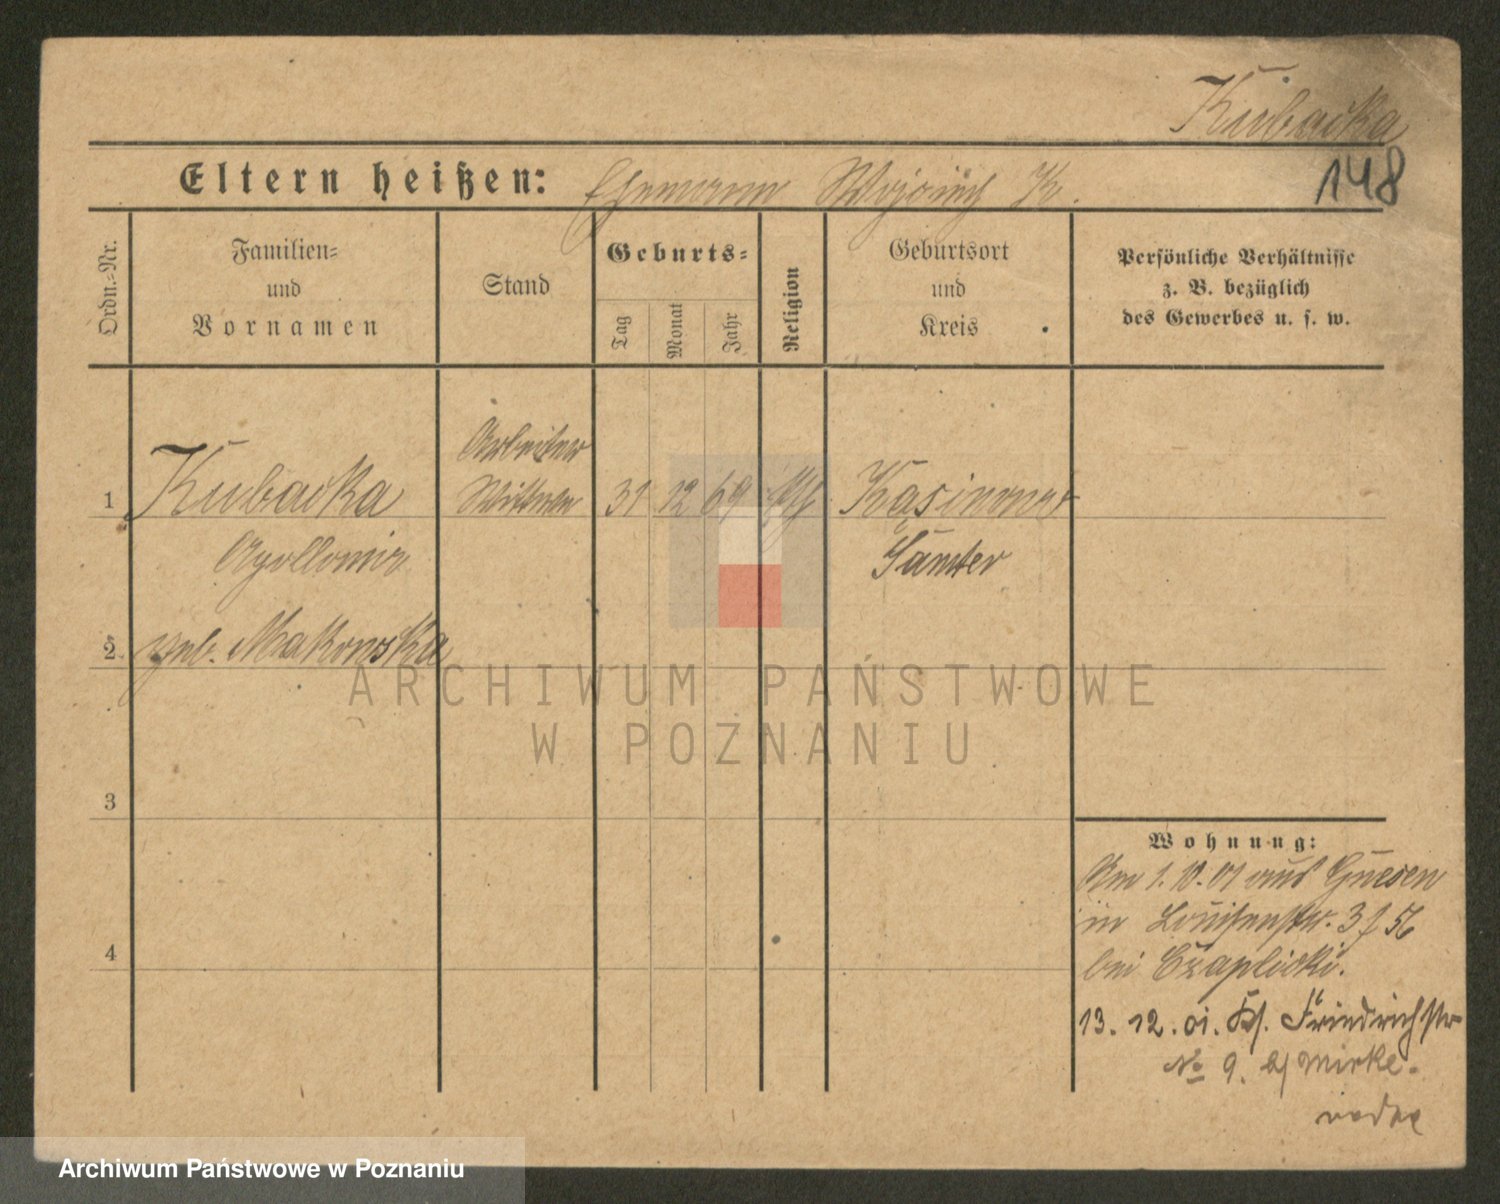 Kubacka
148
Eltern heißen: Ehemann Wojciech K.
Ordn.-Nr.
Familien-
und
Vornamen
Stand
Geburts-
Tag
Monat
Jahr
Religion
Geburtsort
und
Kreis
Persönliche Verhältnisse
z. B. bezüglich
des Gewerbes u. s. w.
Arbeiter
1 Kubacka Wittwe 31 12 69 kth Kasimierz
Apollonia Samter
2 geb. Makowska
ARCHIWUM PAŃSTWOWE
W POZNANIU
3
Wohnung:
Am 1.10.01 aus Gnesen
in Louisenstr. 3
bei Czaplicki.
4
13.12.01. Friedrichstr
No 9. b/
Archiwum Państwowe w Poznaniu